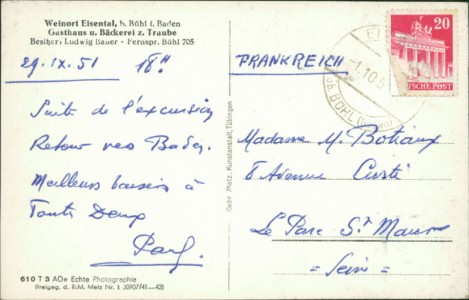 Weinort Eisental, b. Bühl i. Baden
Gasthaus u. Bäckerei z. Traube
Besitzer: Ludwig Bauer · Fernspr. Bühl 205
29.IX.51 18H
Suite de l'excursion
Retour vers Baden.
Meilleurs baisers à
Toute Deux
610 T 3 AOe Echte Photographie
Gebr. Metz, Kunstanstalt, Tübingen
20
DEUTSCHE POST
1.10.5
BÜHL
FRANKREICH
Madame M. Botiaux
8 Avenue
Le Parc St Maur
= Seine =